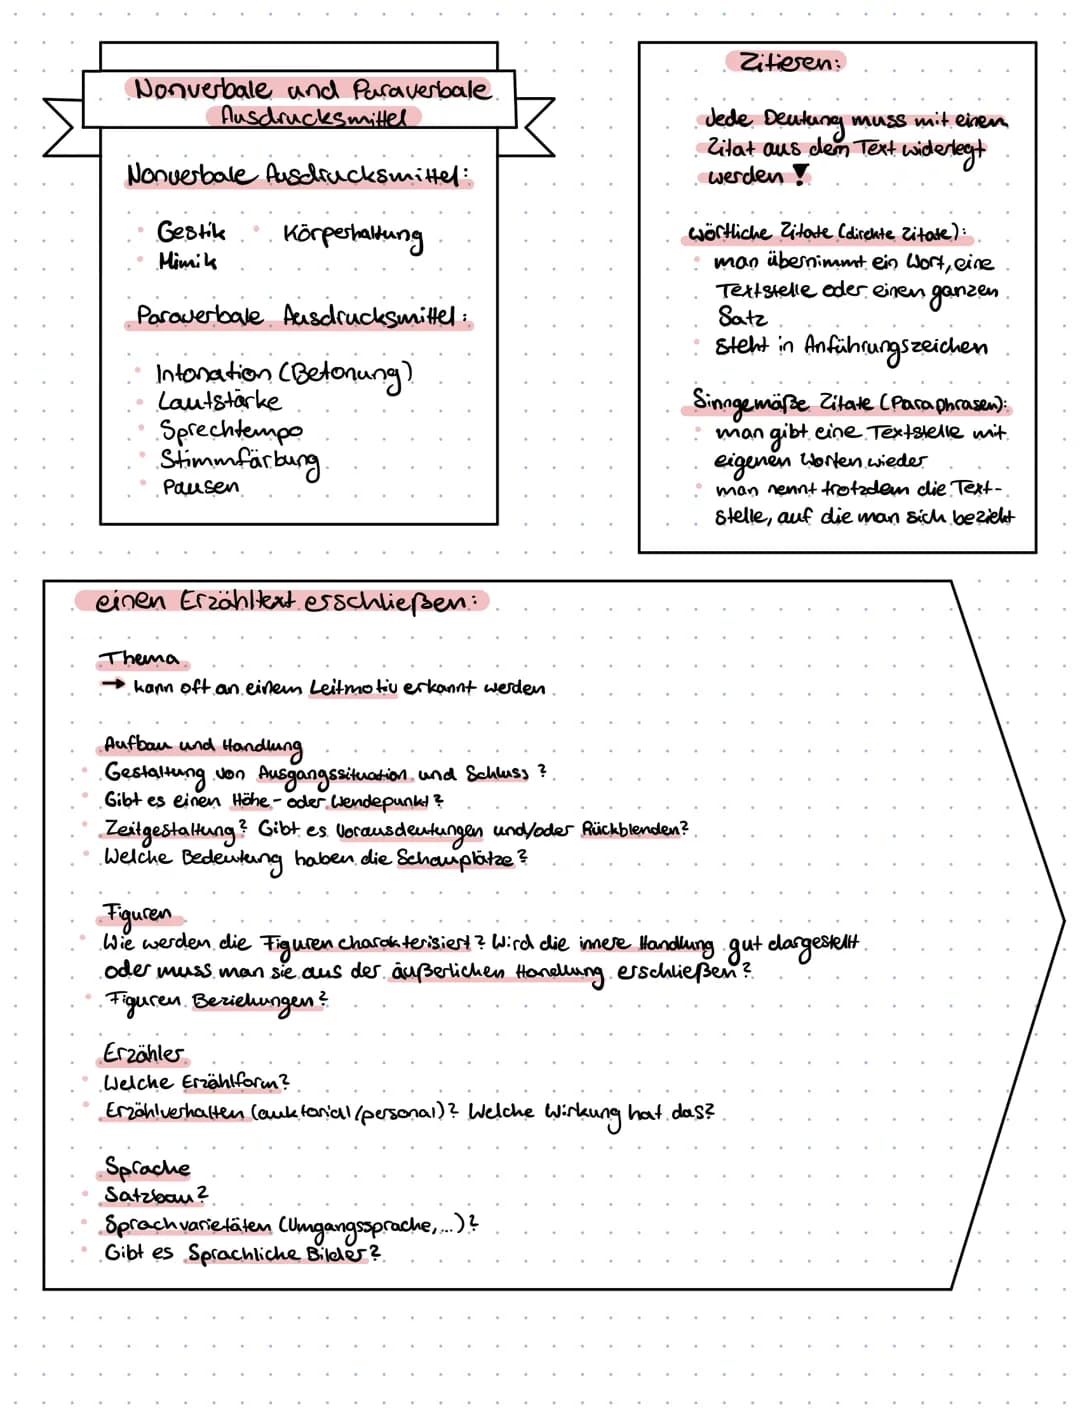 Nonverbale und Paraverbale
Ausdrucksmittel
Nonverbale Ausdrucksmittel:
• Gestik • Körperhaltung
• Mimik
Paraverbale Ausdrucksmittel:
• Intonation (Betonung)
• Lautstärke
• Sprechtempo
• Stimmfärbung
• Pausen
Zitieren:
Jede Deutung muss mit einem
Zitat aus dem Text widerlegt
werden !
wörtliche Zitate (direkte Zitate):
• man übernimmt ein Wort, eine
Textstelle oder einen ganzen
Satz
• steht in Anführungszeichen
Sinngemäße Zitate (Paraphrasen):
• man gibt eine Textstelle mit
eigenen Worten wieder
• man nennt trotzdem die Text-
stelle, auf die man sich bezieht
einen Erzähltext erschließen:
Thema
→ kann oft an einem Leitmotiv erkannt werden
Aufbau und Handlung
• Gestaltung von Ausgangssituation und Schluss?
• Gibt es einen Höhe- oder Wendepunkt?
• Zeitgestaltung? Gibt es Vorausdeutungen und/oder Rückblenden?
• Welche Bedeutung haben die Schauplätze?
Figuren
• Wie werden die Figuren charakterisiert? Wird die innere Handlung gut dargestellt
oder muss man sie aus der äußerlichen Handlung erschließen?
• Figuren Beziehungen?
Erzähler
• Welche Erzählform?
• Erzählverhalten (auktorial/personal)? Welche Wirkung hat das?
Sprache
• Satzbau?
• Sprachvarietäten (Umgangssprache,...)?
• Gibt es Sprachliche Bilder?